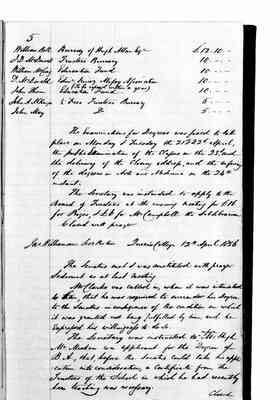 5
William Bell Bursary of Hugh Allan Esqr £12.10.-
J. D. McDonald Trustees Bursary 10.-.-
William McLay Education Fund 10.-.-
D. McDonald Missionary Association 10.-.-
(to be repaid within a year)
John Education Fund 10.-.-
John A. ½ Free Trustees Bursary 5.-.-
John May Do 5.-.-
The Examinations for Degrees was fixed to take
place on Monday & Tuesday the 21st & 22d April,
the public Examination of the Classes on the 23d and
the delivery of the Essays and the conferring
of the degrees in Arts and Medicine on the 24th
instant.
The Secretary was instructed to apply to the
Board of Trustees at the ensuing meeting for £10.
for Prizes, & £5 for Mr Campbell the Sublibrarian
Closed with prayer
Jas Williamson Queens College 12th April 1856
The Senatus met & was constituted with prayer
Sederunt as at last meeting
Mr Clarke was called in, when it was intimated
to him, that he was required to surrender his degree
to the Senatus in consequence of the condition on which
it was granted not being fulfilled by him and he
expressed his willingness to do so.
The Secretary was instructed to Hugh
an applicant for the Degree of
B.A., that, before the Senatus could take his appli
cation into consideration a Certificate from the
Trustees of the School in which he had recently
been teaching was necessary.
Closed